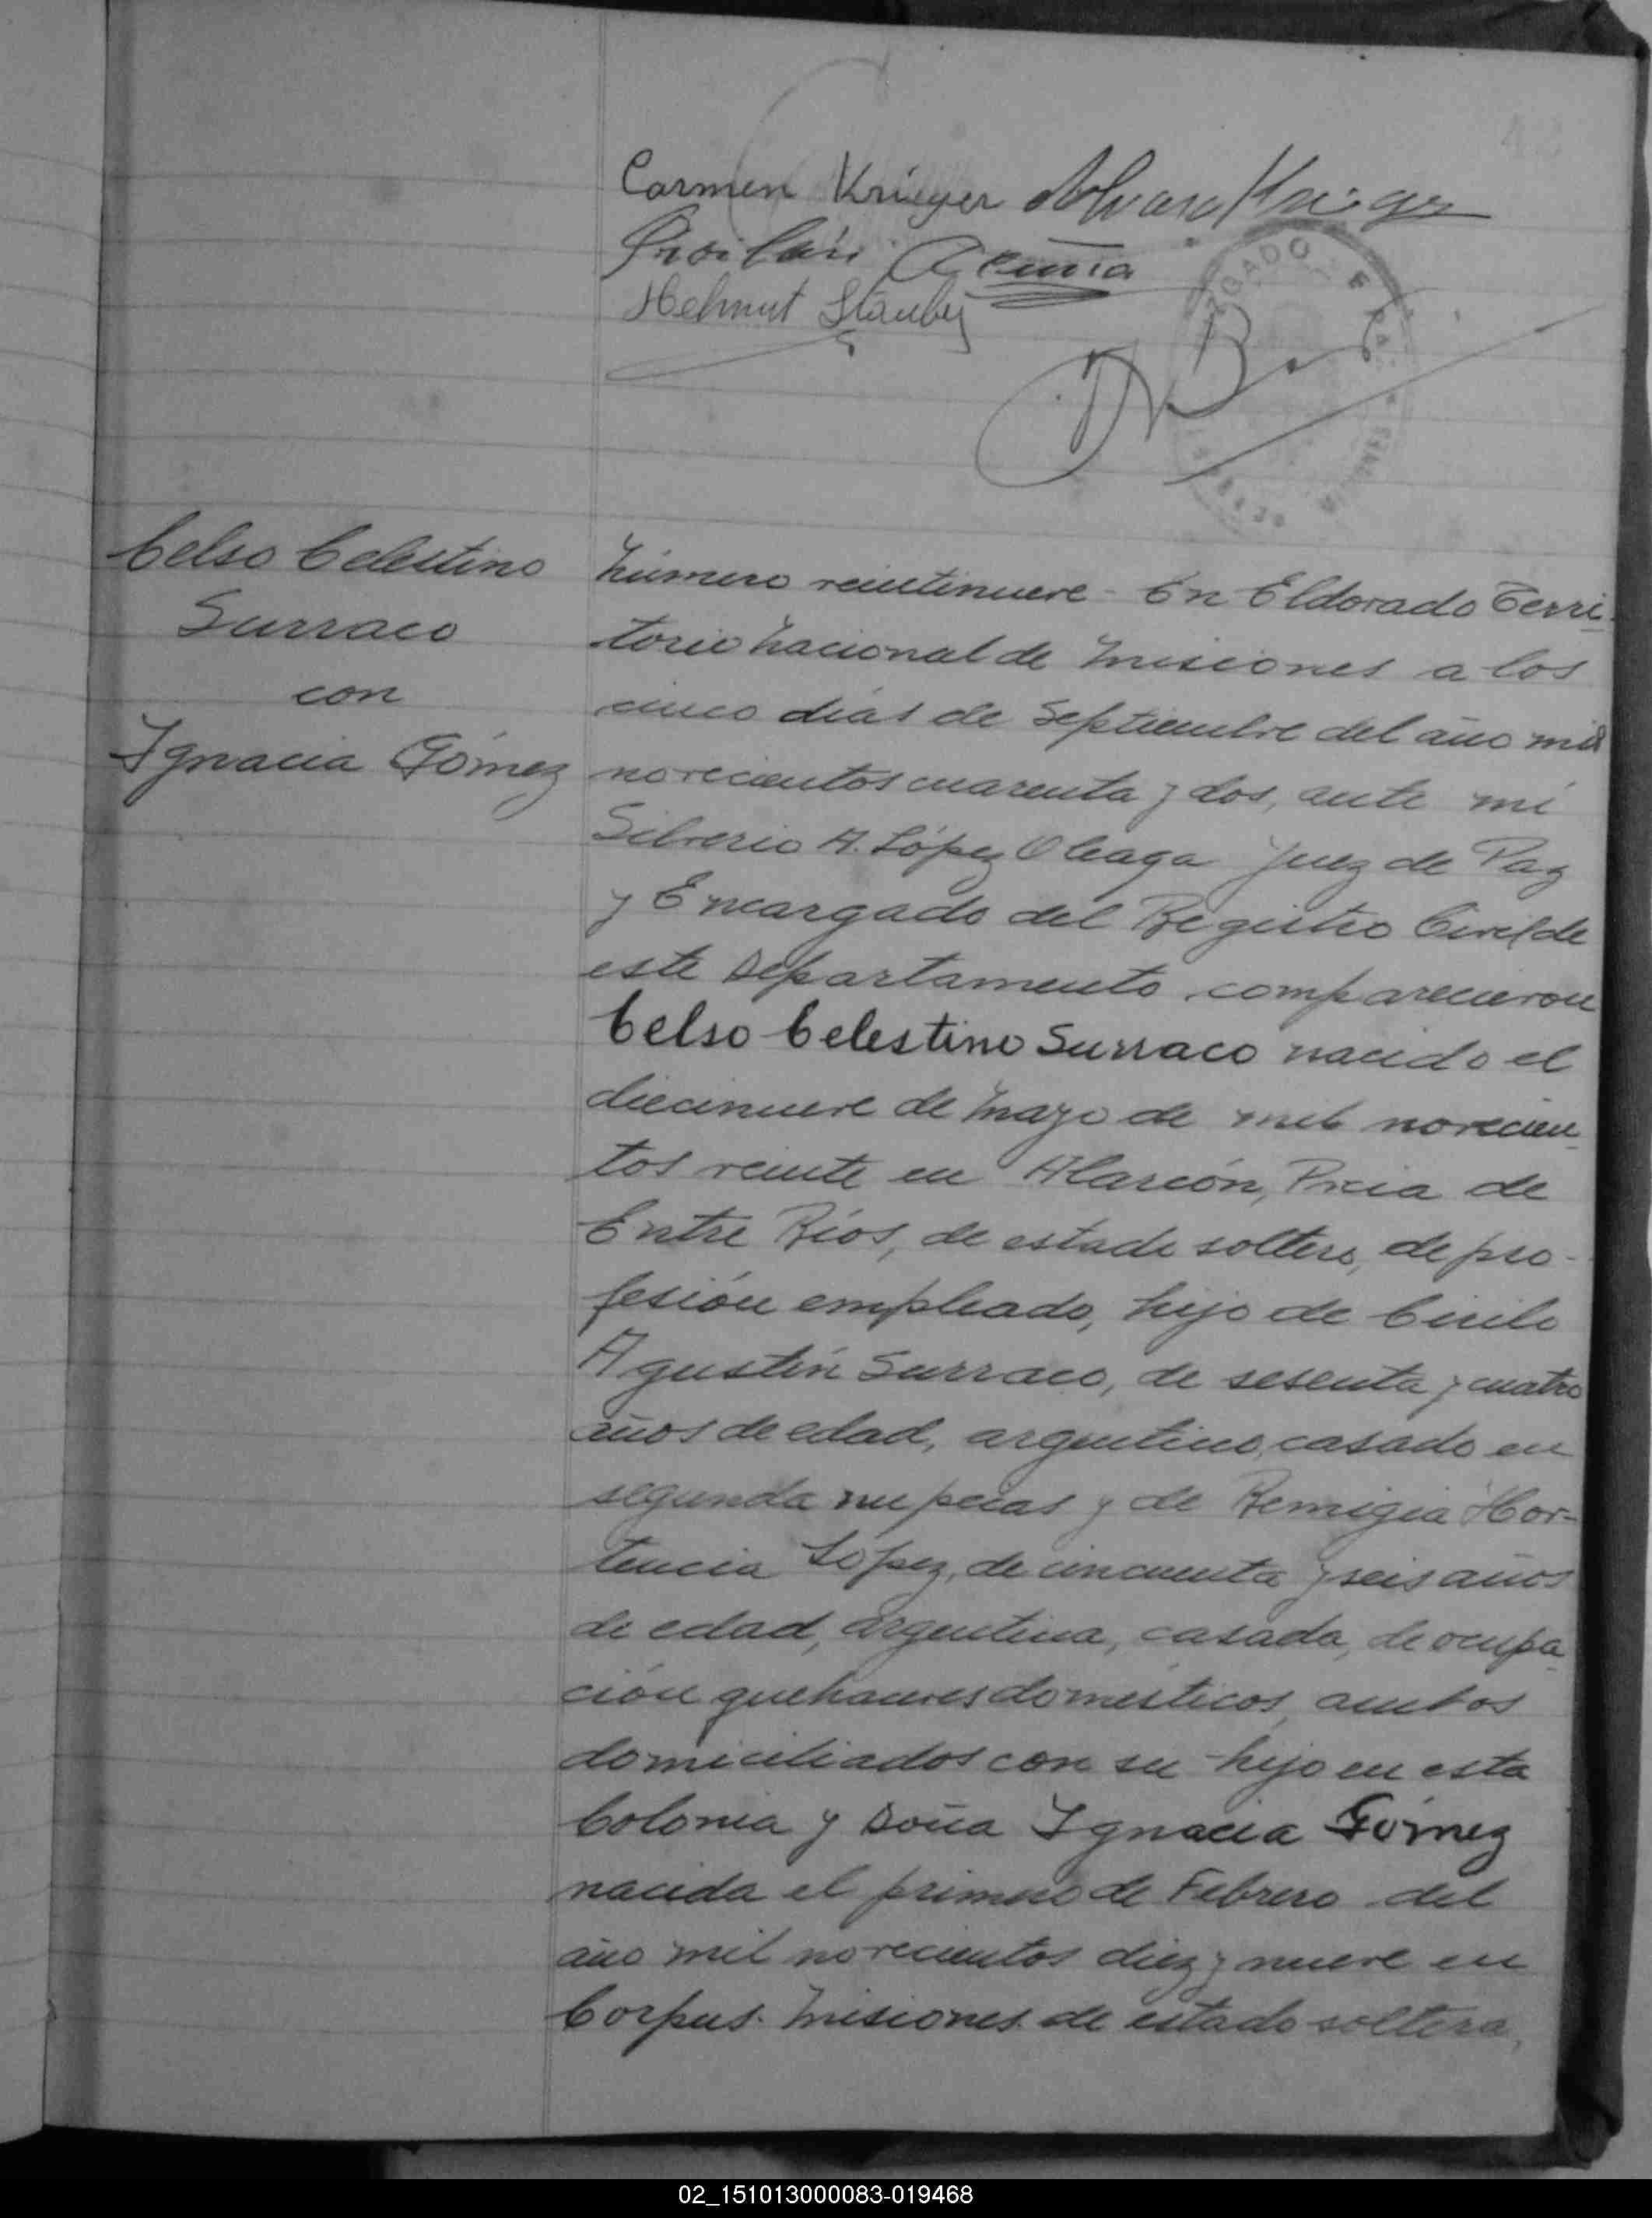 Carmen Krieger
Acuña
Helmut
Celso Celestino
Surraco
con
Ignacia Gómez
Número veintinueve - En Eldorado Terri-
torio Nacional de Misiones a los
cinco días de Septiembre del año mil
novecientos cuarenta y dos, ante mí
Silverio A. López Oleaga Juez de Paz
y Encargado del Registro Civil de
este Departamento, comparecieron
Celso Celestino Surraco nacido el
diecinueve de Mayo de mil novecien-
tos veinte en Alarcón, Pcia de
Entre Ríos, de estado soltero, de pro-
fesión empleado, hijo de Cirilo
Agustín Surraco, de sesenta y cuatro
años de edad, argentino, casado en
segunda nupcias y de Remigia Hor-
tencia López, de cincuenta y seis años
de edad, argentina, casada, de ocupa-
ción quehaceres domésticos, ambos
domiciliados con su hijo en esta
Colonia y Doña Ignacia Gómez
nacida el primero de Febrero del
año mil novecientos diez y nueve en
Corpus. Misiones. de estado soltera,
02_151013000083-019468